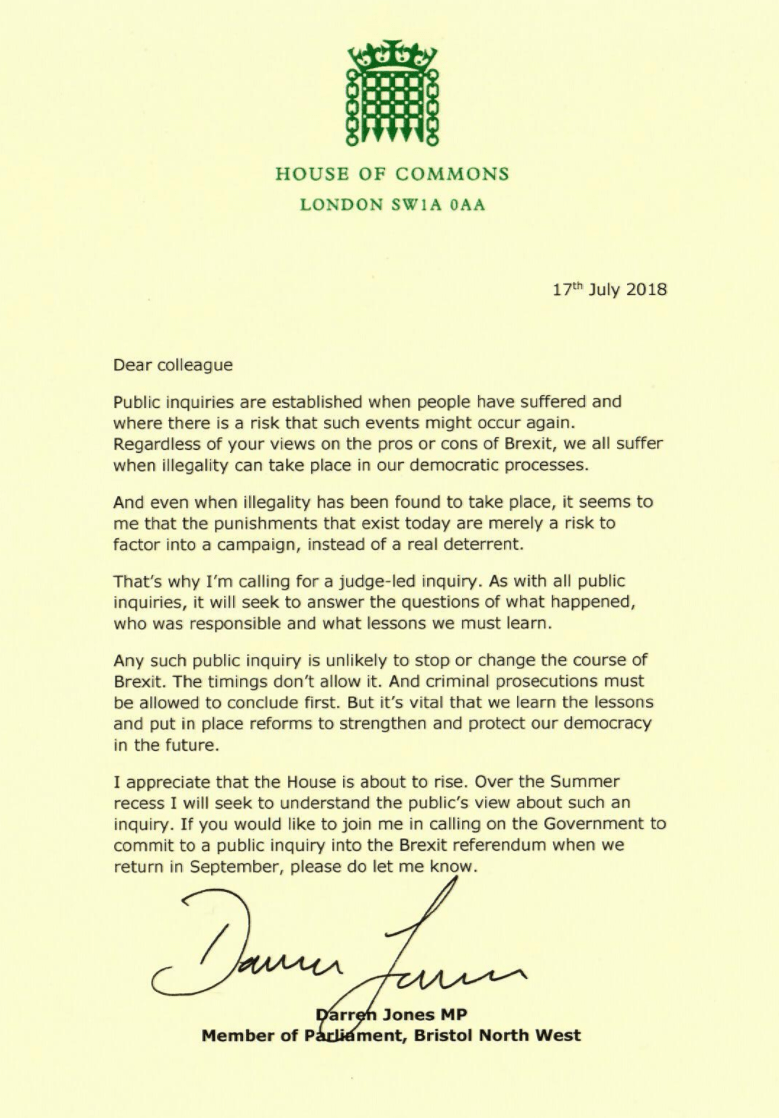 HOUSE OF COMMONS
LONDON SW1A 0AA
17th July 2018
Dear colleague
Public inquiries are established when people have suffered and
where there is a risk that such events might occur again.
Regardless of your views on the pros or cons of Brexit, we all suffer
when illegality can take place in our democratic processes.
And even when illegality has been found to take place, it seems to
me that the punishments that exist today are merely a risk to
factor into a campaign, instead of a real deterrent.
That's why I'm calling for a judge-led inquiry. As with all public
inquiries, it will seek to answer the questions of what happened,
who was responsible and what lessons we must learn.
Any such public inquiry is unlikely to stop or change the course of
Brexit. The timings don't allow it. And criminal prosecutions must
be allowed to conclude first. But it's vital that we learn the lessons
and put in place reforms to strengthen and protect our democracy
in the future.
I appreciate that the House is about to rise. Over the Summer
recess I will seek to understand the public's view about such an
inquiry. If you would like to join me in calling on the Government to
commit to a public inquiry into the Brexit referendum when we
return in September, please do let me know.
Darren Jones
Darren Jones MP
Member of Parliament, Bristol North West